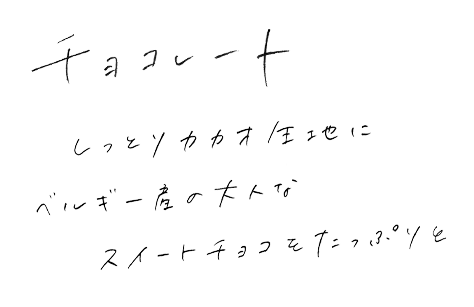 チョコレート
しっとりカカオ生地に
ベルギー産の大人な
スイートチョコをたっぷりと